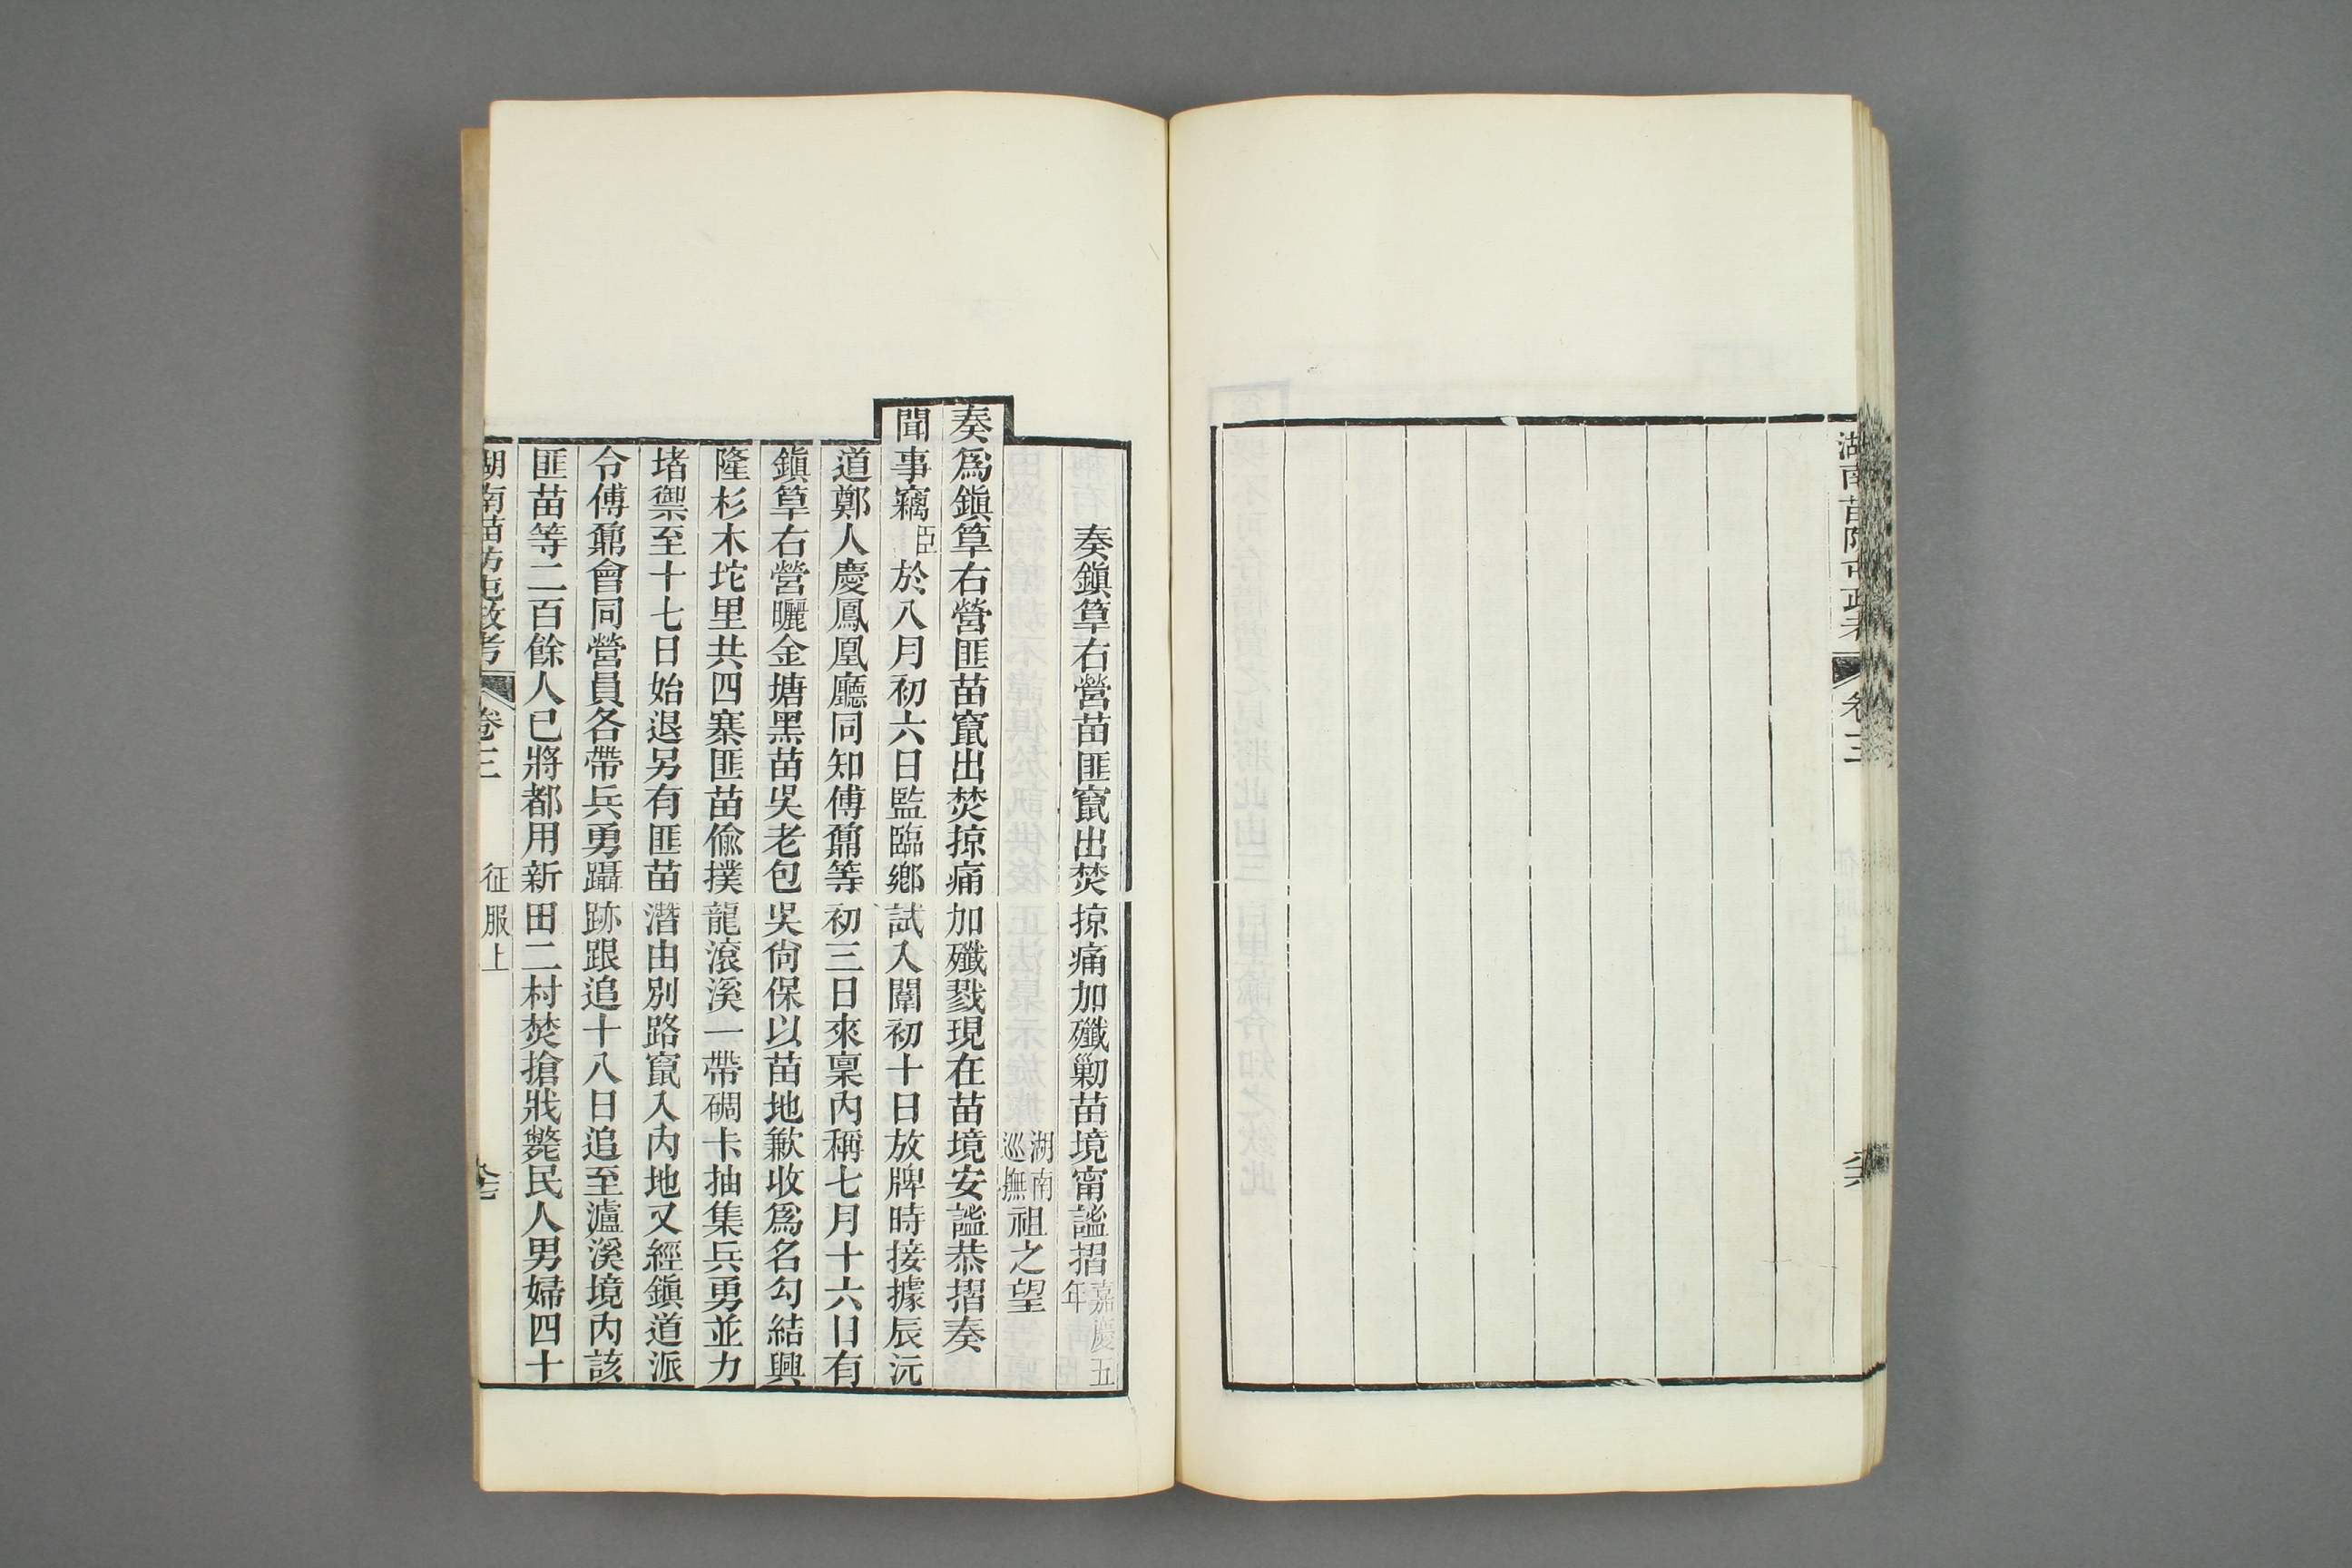 湖南苗防屯政考
卷三
六
奏鎮筸右營苗匪竄出焚掠痛加殲勦苗境甯謐摺嘉慶五年
湖南巡撫祖之望
奏爲鎮筸右營匪苗竄出焚掠痛加殲戮現在苗境安謐恭摺奏
聞事竊臣於八月初六日監臨鄉試入闈初十日放牌時接據辰沅
道鄭人慶鳳凰廳同知傅鼐等初三日來稟內稱七月十六日有
鎮筸右營曬金塘黑苗吳老包吳尙保以苗地歉收爲名勾結興
隆杉木坨里共四寨匪苗偸撲龍滾溪一帶碉卡抽集兵勇並力
堵禦至十七日始退另有匪苗潛由別路竄入內地又經鎮道派
令傅鼐會同營員各帶兵勇躡跡跟追十八日追至瀘溪境內該
匪苗等二百餘人已將都用新田二村焚搶戕斃民人男婦四十
湖南苗防屯政考
卷三
征服上